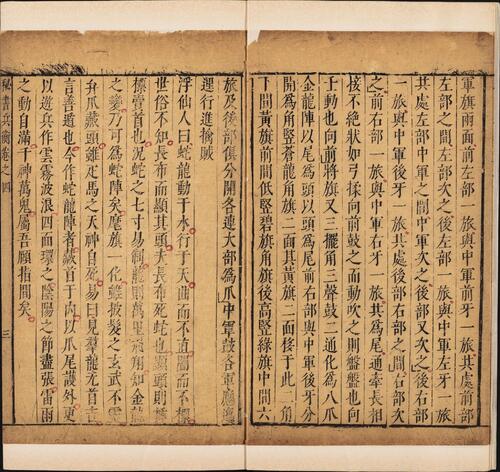 軍旗兩面前左部與中軍前牙一旅其處前部
左部之間左部次之後左部與中軍左牙一旅
其處左部中軍之間中軍次之後部又次之後右部
一旅與中軍後牙一旅其處後部右部之間右部次
之前右部一旅與中軍右牙一旅其為尾通牽長相
接不絶狀如弓揉向前鼓之而動吹之則盤盤也向
士動也向前將旗又三擺角三聲鼓二通化為八爪
金龍陣以尾為頭以頭為尾前右部與中軍後牙分
開為角竪蒼龍角旗二面其黃旗二面移于此二角
下間黃旗前間低竪碧旗角旗後高竪綠旗中間六
旅及後部俱分開各連大部為爪中軍鼓各軍
運行進擒賊
浮仙人曰蛇龍動于水行于天曲而不直屬而不標
世俗不知長布而顯其頭夫長布死蛇也顯頭則
標當首也況蛇之七寸易制龍則萬里飛角知金龍
之變乃可為蛇陣矣麾旗一化雖披髮之玄武不
身爪藏頭雖疋馬之天神自死易曰見羣龍无首吉
言善遁也今作蛇龍陣者藏首于内以爪尾護外更
以遊兵作雲霧波浪四面環之陰陽之節盡張雷雨
之動自滿千神萬鬼屬吾顧指間矣
秘書兵衡卷之四
三